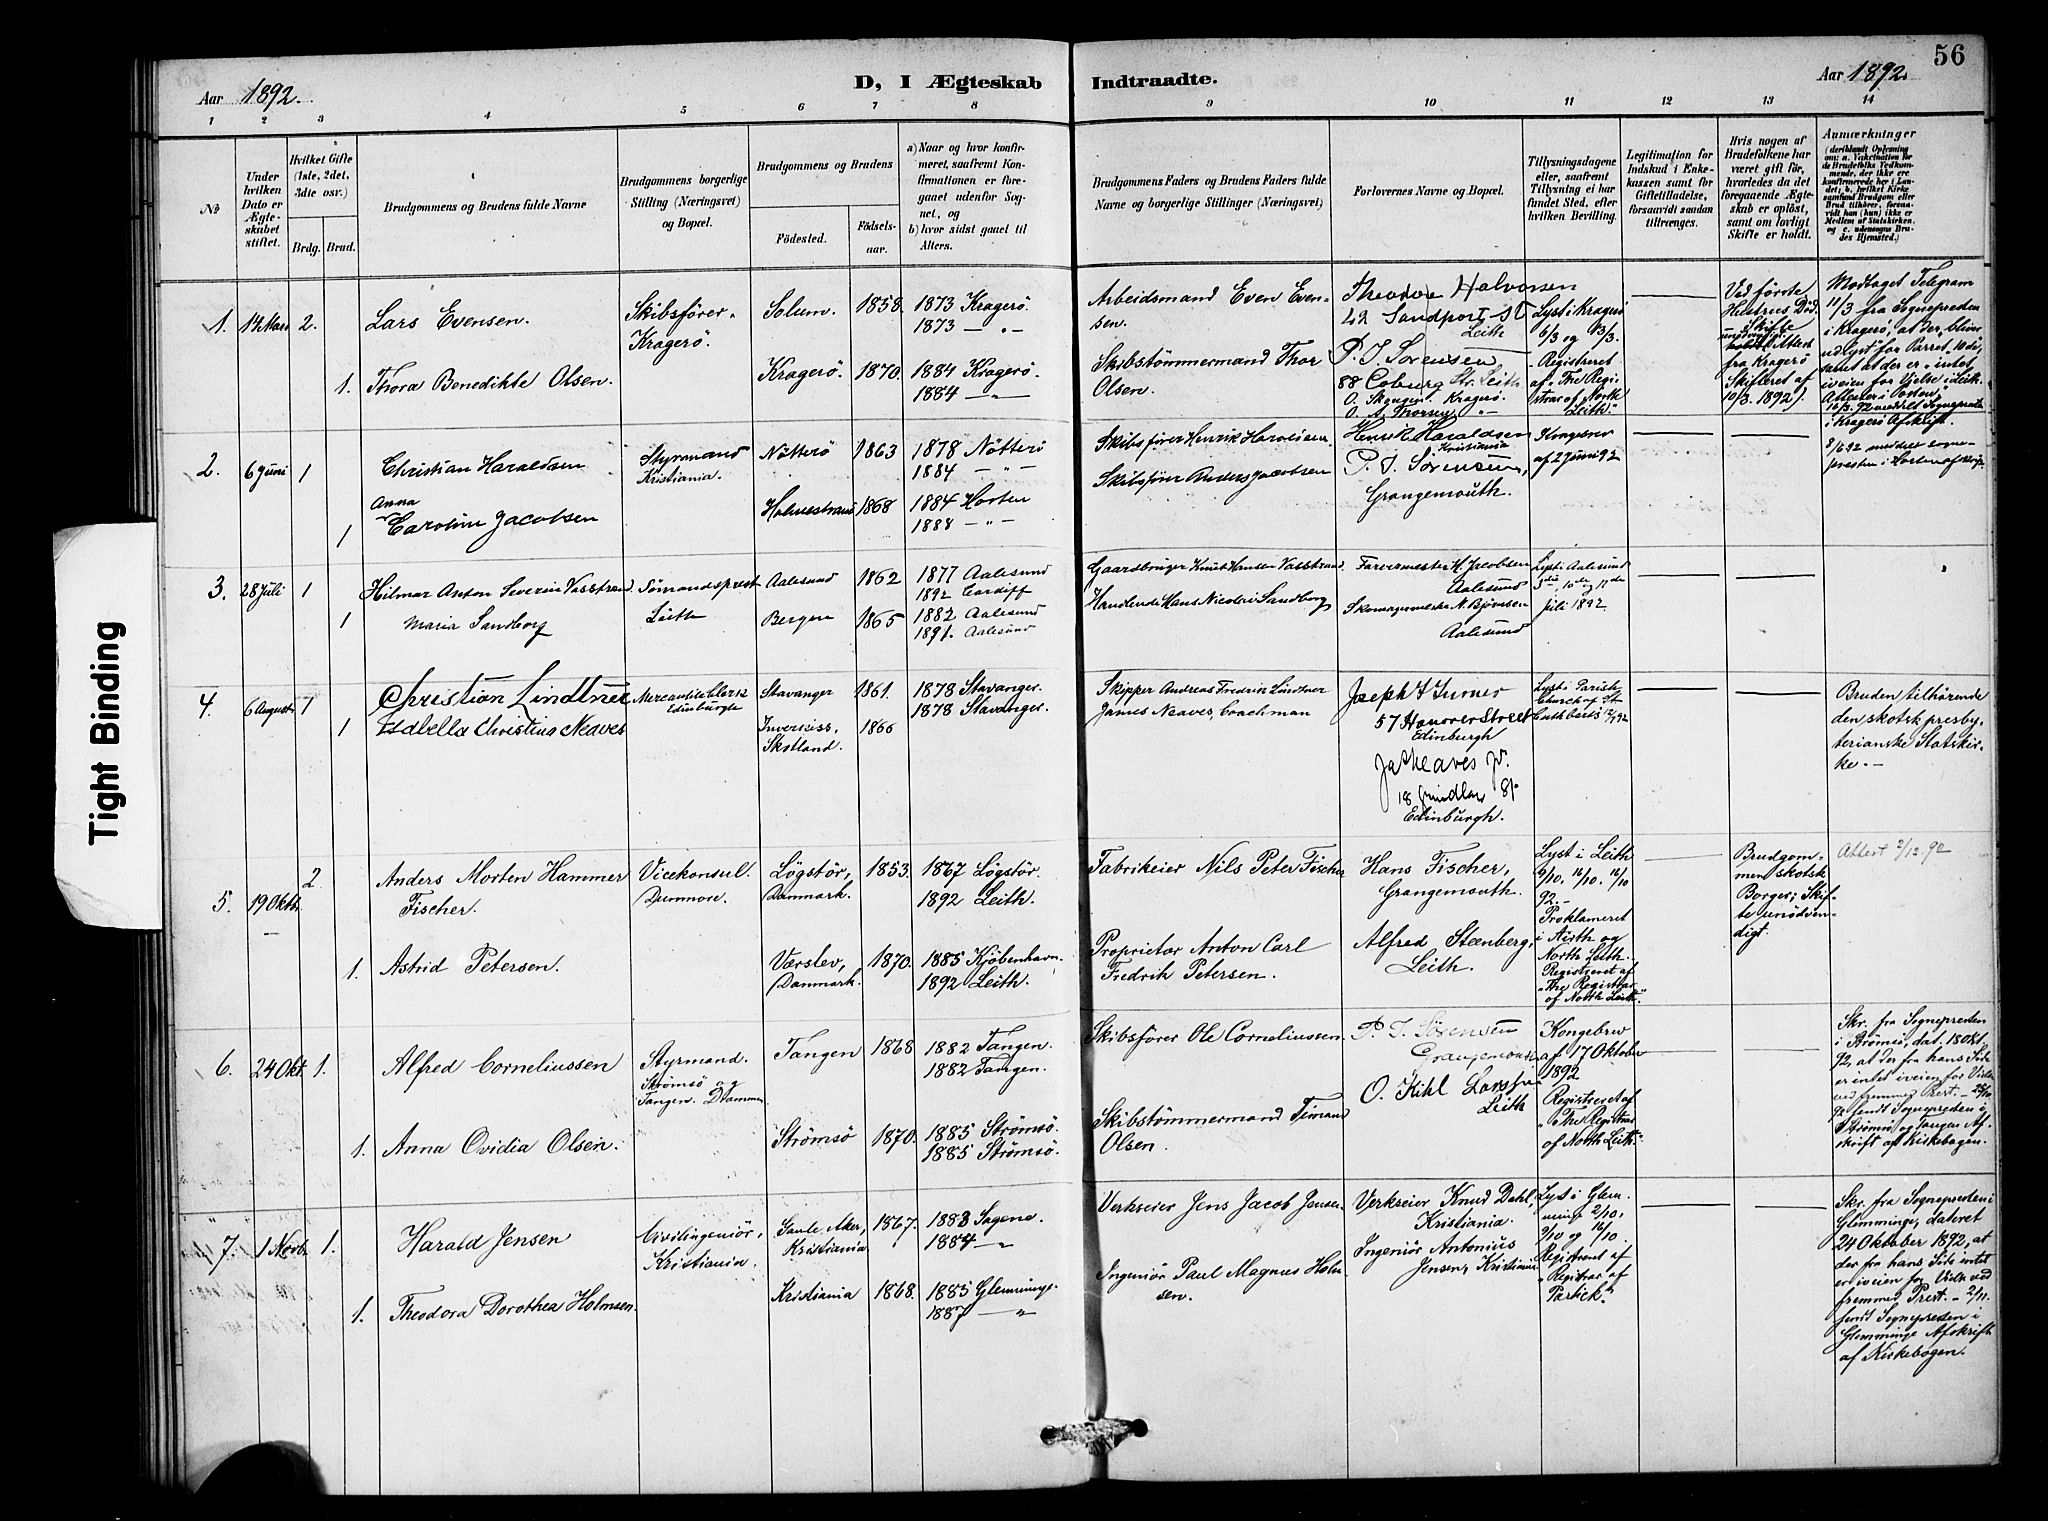 56
Aar 1892.
D, I Ægteskab
Indtraadte.
Aar 1892.
1 2 3 4 5 6 7 8 9 10 11 12 13 14
№
Under hvilken Dato er Ægteskabet stiftet.
Hvilket Gifte (1ste, 2det, 3die osv.)
Brdg. Brud.
Brudgommens og Brudens fulde Navne
Brudgommens borgerlige Stilling (Næringsvei) og Bopæl.
Brudgommens og Brudens
Fødested.
Fødselsaar.
a) Naar og hvor konfirmeret, saafremt Konfirmationen er foregaaet udenfor Sognet, og
b) hvor sidst gaaet til Alters.
Brudgommens Faders og Brudens Faders fulde Navne og borgerlige Stillinger (Næringsvei)
Forlovernes Navne og Bopæl.
Tillysningsdagene eller, saafremt Tillysning ei har fundet Sted, efter hvilken Bevilling.
Legitimation for Indskud i Enkekassen samt for Giftetilladelse, forsaavidt saadan tiltrænges.
Hvis nogen af Brudefolkene har været gift før, hvorledes da det foregaaende Ægteskab er opløst, samt om lovligt Skifte er holdt.
Anmærkninger (deriblandt Oplysning om: a. Vakcination for de Brudefolks Vedkommende, der ikke ere konfirmerede her i Landet; b. hvilket Kirkesamfund Brudgom eller Brud tilhører, forsaavidt han (hun) ikke er Medlem af Statskirken, og c. udensogns Brudes Hjemsted.)
1. 14 Mars 2.
Lars Evensen.
Skibsfører.
Kragerö.
Solum. 1858.
1873 Kragerö
1873 — „ —
Arbeidsmand Even Evensen.
Theodore Halvorsen
42 Sandport St
Leith
Lyst i Kragerö
6/3 og 13/3.
Registreret
af "The Registrar of North
Leith."
Ved förste
Hustrues Död.
Skifte
Attest
fra Kragerö
Skifteret af
10/3. 1892.
Modtaget Telegram
11/3 fra Sognepresten
i Kragerö, at der bliver
udlyst for Parret
samt at der er intet
iveien for Vielse i Leith.
1. Thora Benedikte Olsen.
Kragerö. 1870.
1884 Kragerö.
1884 — „ —
Skibstömmermand Thor
Olsen.
P. J. Sörensen
88 Coburg Str. Leith
2. 6 Juni 1
Christian Haraldsen
Styrmand
Kristiania.
Nötterö 1863
1878 Nötterö
1884 — „ —
Skibsfører Henrik Haraldsen
Henrik Haraldsen
Kristiania
Kongebrev
af 2 Juni 92
Anna
1 Caroline Jacobsen
Holmestrand 1868
1884 Horten
1888 — „ —
Skibsfører Anders Jacobsen
P. J. Sörensen,
Grangemouth.
3. 28 Juli 1
Hilmar Anton Severin Vasstrand
Sömandsprest
Leith
Aalesund 1862
1877 Aalesund
1892 Cardiff
Gaardbruger Knut Hansen Vasstrand.
Farvermester H. Jacobsen
Aalesund
Lyst i Aalesund
3die, 10de og 17de
Juli 1892.
1 Maria Sandborg
Bergen 1865
1882 Aalesund
1891. Aalesund
Handlende Hans Nicolai Sandborg
Skomagermester N. Björnsen
Aalesund
4. 6 August 1
Christian Lindtner
Mercantile clerk
Edinburgh
Stavanger 1861.
1878 Stavanger.
1878 Stavanger.
Skipper Andreas Fredrik Lindtner
Joseph H Turner
57 Hanover Street
Edinburgh
Lyst i Parish
Church of St
Cuthberts
Bruden tilhörende
den skotsk presbyterianske Statskirke. —
1 Isabella Christina Neaves
Inverniss,
Skotland. 1866
James Neaves, Coachman
Jas Neaves Jr.
18 Grindlay St.
Edinburgh.
5. 19 Oktb. 2
Anders Morten Hammer
Fischer.
Vicekonsul.
Dunmore.
Lögstör,
Danmark. 1853.
1867 Lögstör.
1892 Leith.
Fabrikeier Nils Peter Fischer
Hans Fischer,
Grangemouth.
Lyst i Leith
9/10. 16/10. 16/10
92. —
Proklameret
i Airth og
North Leith.
Registreret af
"The Registrar
of North Leith."
Brudgommen skotsk
Borger; Skifte unödvendigt.
Attest 2/12. 92
1. Astrid Petersen.
Værslev,
Danmark. 1870.
1885 Kjöbenhavn.
1892 Leith.
Proprietær Anton Carl
Fredrik Petersen.
Alfred Steenberg,
Leith.
6. 24 Okt. 1.
Alfred Corneliussen
Styrmand.
Strömsö og
Tangen. Drammen
Tangen 1868
1882 Tangen.
1882 Tangen.
Skibsförer Ole Corneliussen.
P. J. Sörensen
Grangemouth
Kongebrev
af 17 Oktober
1892
Registreret af
"The Registrar
of North Leith."
Skr. fra Sognepresten
i Strömsö, dat. 18 Okt.
92, at der fra hans Side
er intet iveien for Vielse
ved fremmed Prest. —
sendt Sognepresten i
Strömsö og Tangen Afskrift af Kirkebogen.
1. Anna Ovidia Olsen.
Strömsö 1870.
1885 Strömsö.
1885 Strömsö.
Skibstömmermand
Olsen.
O. Kihl Larssen
Leith
7. 1 Novb. 1.
Harald Jensen
Civilingeniör,
Kristiania.
Gamle Aker,
Kristiania 1867.
1883 Sagene.
1884 — „
Verkseier Jens Jacob Jensen
Verkseier Knud Dahl,
Kristiania.
Lyst i Glemminge 2/10,
9/10 og 16/10.
Registreret af
"Registrar of
Partick."
Skr. fra Sognepresten i
Glemminge, dateret
24 Oktober 1892, at
der fra hans Side intet
er iveien for Vielse ved
fremmed Prest. — 2/11.
sendt Sognepresten i
Glemminge Afskrift
af Kirkebogen.
1. Theodora Dorothea Holmsen.
Kristiania 1868.
1885 Glemminge
1887 — „
Ingeniör Paul Magnus Holmsen.
Ingeniör Antonius
Jensen, Kristiania
Tight Binding